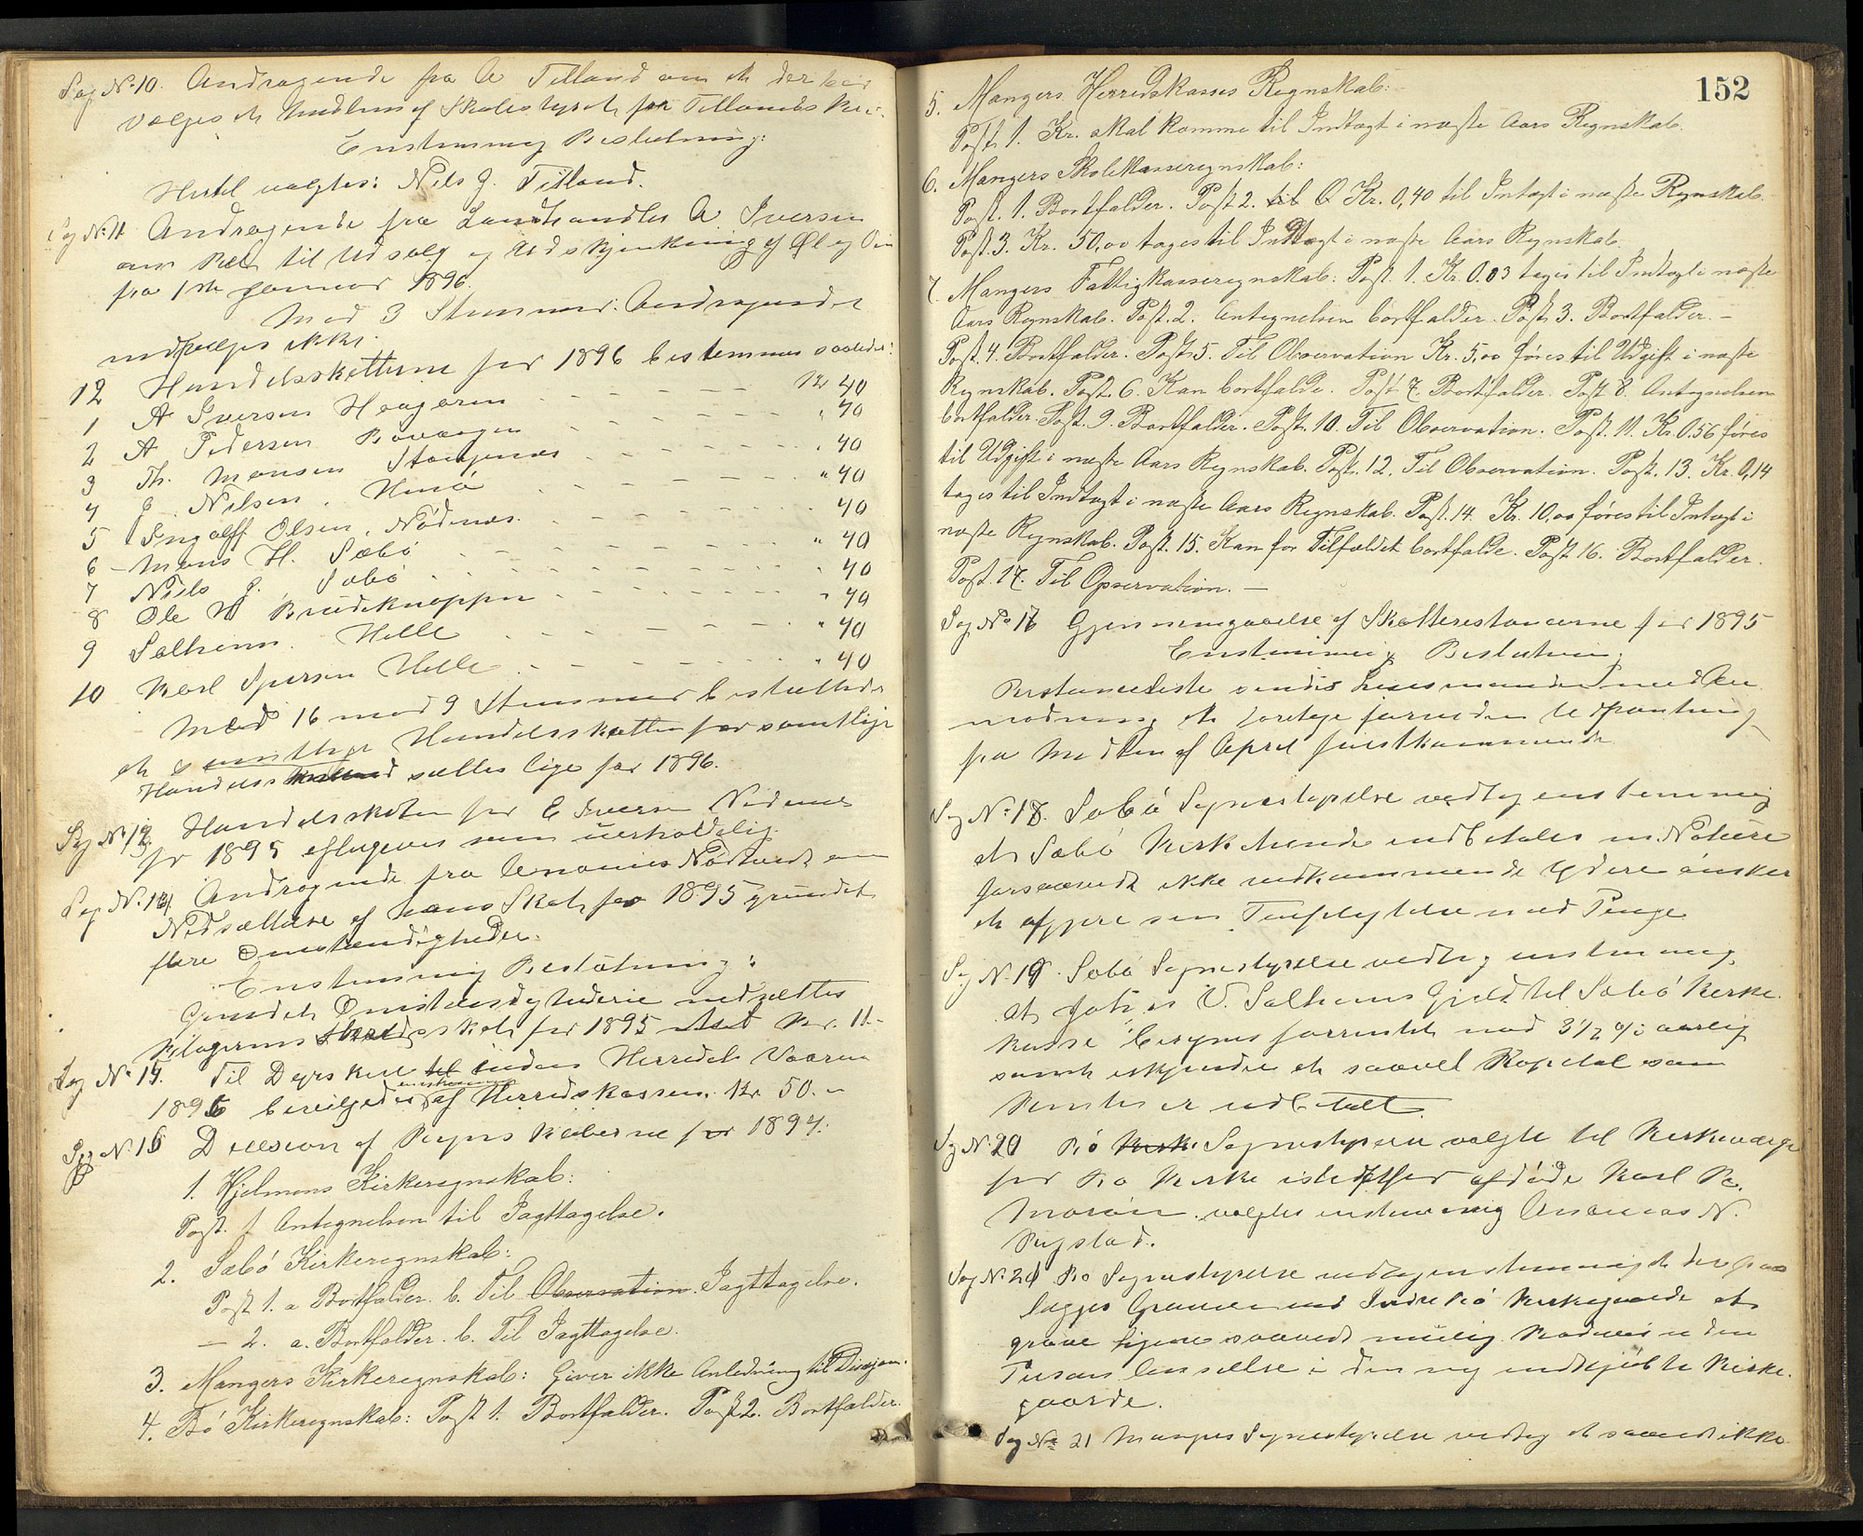 Sag N. 10. Andragende fra A Tilland om at der bør
vælges et Medlem af Skolestyret for Tillands Kr:
Enstemmig Beslutning:
Hertil valgtes: Nils J. Tilland.
Sag N. 11 Andragende fra Landhandler A. Iversen
om Ret til Udsalg og Udskjænkning af Øl og Vin
fra 1ste Januar 1896.
Med 3 Stemmer. Andragendet
ikke.
12 Handelsskatterne for 1896 bestemmes saaledes:
1 A Iversen Haagøren - - - - Kr 40
2 A Pedersen Bøvaagen - - - - " 40
3 Th. Monsen Stangenes - - - - " 40
4 J. Nilsen, - - - - " 40
5 Ingolff Olsen, Nødnes. - - - - " 40
6 - Mons H. Sæbø - - - - " 40
7 Nils J. Sæbø - - - - " 40
8 Ole M Brudeknappen - - - - " 40
9 Solheim. Helle - - - - " 40
10 Karl Iversen Helle - - - - " 40
Med 16 mod 9 Stemmer besluttedes
at samtlige Handelsskatter for samtlige
Handels sættes lige for 1896.
Sag N. 13. Handelsskaten for E Iversen Nødnes
for 1895 eftergives som uerholdelig.
Sag N. 14. Andragende fra Nødtvedt om
Nedsættelse af hans Skat for 1895 grundet
flere Omstændigheder.
Enstemmig Beslutning:
Grundet Omstændighederne nedsættes
Klagerens Herredsskat for 1895 med Kr. 11.-
Sag N. 15. Til Dyrskue til inden Herredet Vaaren
1896 bevilgedes enstemmig af Herredskassen Kr. 50.-
Sag N. 16 Decision af Regnskaberne for 1894.
1. Hjelmens Kirkeregnskab:
Post. 1 Antegnelsen til Iagttagelse.
2. Sæbø Kirkeregnskab:
Post 1. a Bortfalder. b. Til Observation. Iagttagelse.
— 2. a. Bortfalder. b. Til Iagttagelse.
3. Mangers Kirkeregnskab: Giver ikke Anledning til Decisjon.
4. Bø Kirkeregnskab: Post 1. Bortfalder. Post 2. Bortfalder.
152
5. Mangers Herredskasses Regnskab:
Post 1. Kr. skal komme til Indtægt i næste Aars Regnskab.
6. Mangers Skolekasseregnskab:
Post. 1. Bortfalder. Post 2. til Kr. 0,40 til Intægt i næste Regnskab.
Post 3. Kr. 50,00 tages til Indtægt i næste Aars Regnskab.
7. Mangers Fattigkasseregnskab: Post. 1. Kr. 0.03 tages til Indtægt i næste
Aars Regnskab. Post. 2. Antegnelsen bortfalder. Post 3. Bortfalder. —
Post. 4. Bortfalder. Post 5. Til Observation Kr. 5,00 føres til Udgift i næste
Regnskab. Post. 6. Kan bortfalde. Post 7. Bortfalder. Post 8. Antegnelsen
bortfalder. Post. 9. Bortfalder. Post. 10. Til Observation. Post. 11. Kr. 0.56 føres
til Udgift i næste Aars Regnskab. Post. 12. Til Observation. Post. 13. Kr. 0,14
tages til Indtægt i næste Aars Regnskab. Post. 14. Kr. 10,00 føres til Intægt i
næste Regnskab. Post. 15. Kan for Tilfældet bortfalde. Post 16. Bortfalder.
Post. 17. Til Opservation. —
Sag No 17 Gjennemgaaelse af Skatterestancerne for 1895
Enstemmig Beslutning
Restanceliste sendes Lensmanden med An
modning at foretage fornøden Udpantning
fra Midten af April førstkommende
Sag N. 18. Sæbø Sognestyrelse vedtog enstemmig
at Sæbø Kirketiende indbetales in Nature
forsaavidt ikke vedkommende Ydere ønsker
at afgjøre sin med Penge
Sag N. 19. Sæbø Sognestyrelse vedtog enstemmig,
at Johs. V. Solheims Gjeld til Sæbø Kirke.
kasse beregnes forrentet med 3½ % aarlig
samt at saavel Kapital som
Renter er udbetalt.
Sag N. 20 Bø Kirke Sognestyrelse valgte til Kirkeværge
for Bø Kirke istedetfor afdøde Karl R.
valgtes enstemmig Ananias N.
Rigstad.
Sag N. 21 Bø Sognestyrelse vedtog enstemmig at der paa
lægges Graveren ved Indre Bø Kirkegaarde at
grave ligene saavidt mulig Nedenunder den
i den ny indkjøbte Kirke.
gaarde.
Sag No 21 Mangers Sognestyrelse vedtog at saavidt ikke